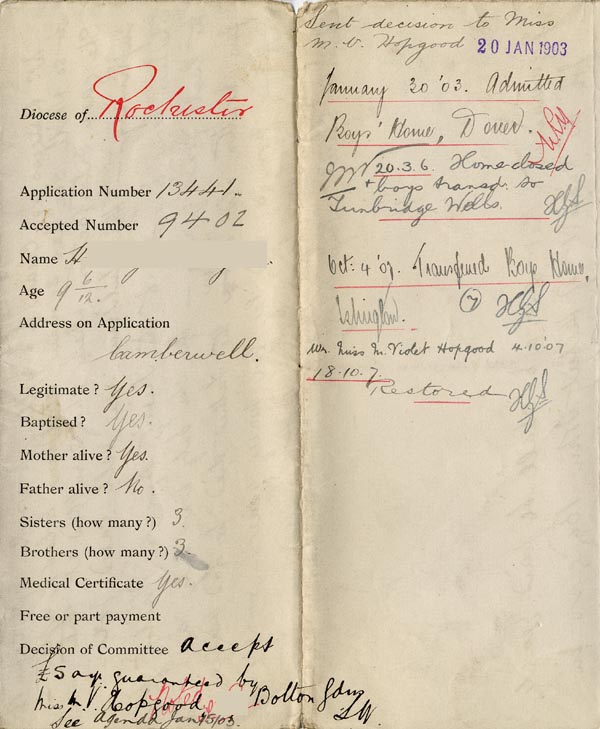 Diocese of Rochester
Application Number 13441.
Accepted Number 9402
Name H
Age 9 6/12.
Address on Application
Camberwell.
Legitimate? Yes.
Baptised? Yes.
Mother alive? Yes.
Father alive? No.
Sisters (how many?) 3.
Brothers (how many?) 3.
Medical Certificate Yes.
Free or part payment
Decision of Committee accept
£5 a yr guaranteed by
Miss M. V. Hopgood Bolton Gdns
S.W.
See Agenda Jan 15/03.
Sent decision to Miss
M. V. Hopgood 20 JAN 1903
January 20 '03. Admitted
Boys' Home, Dover.
20.3.6. Home closed
+ boys transd. to
Tunbridge Wells.
Oct. 4 '07. Transferred Boys Home,
Islington. (7)
Wr. Miss M. Violet Hopgood 4.10.07
18.10.7.
Restored